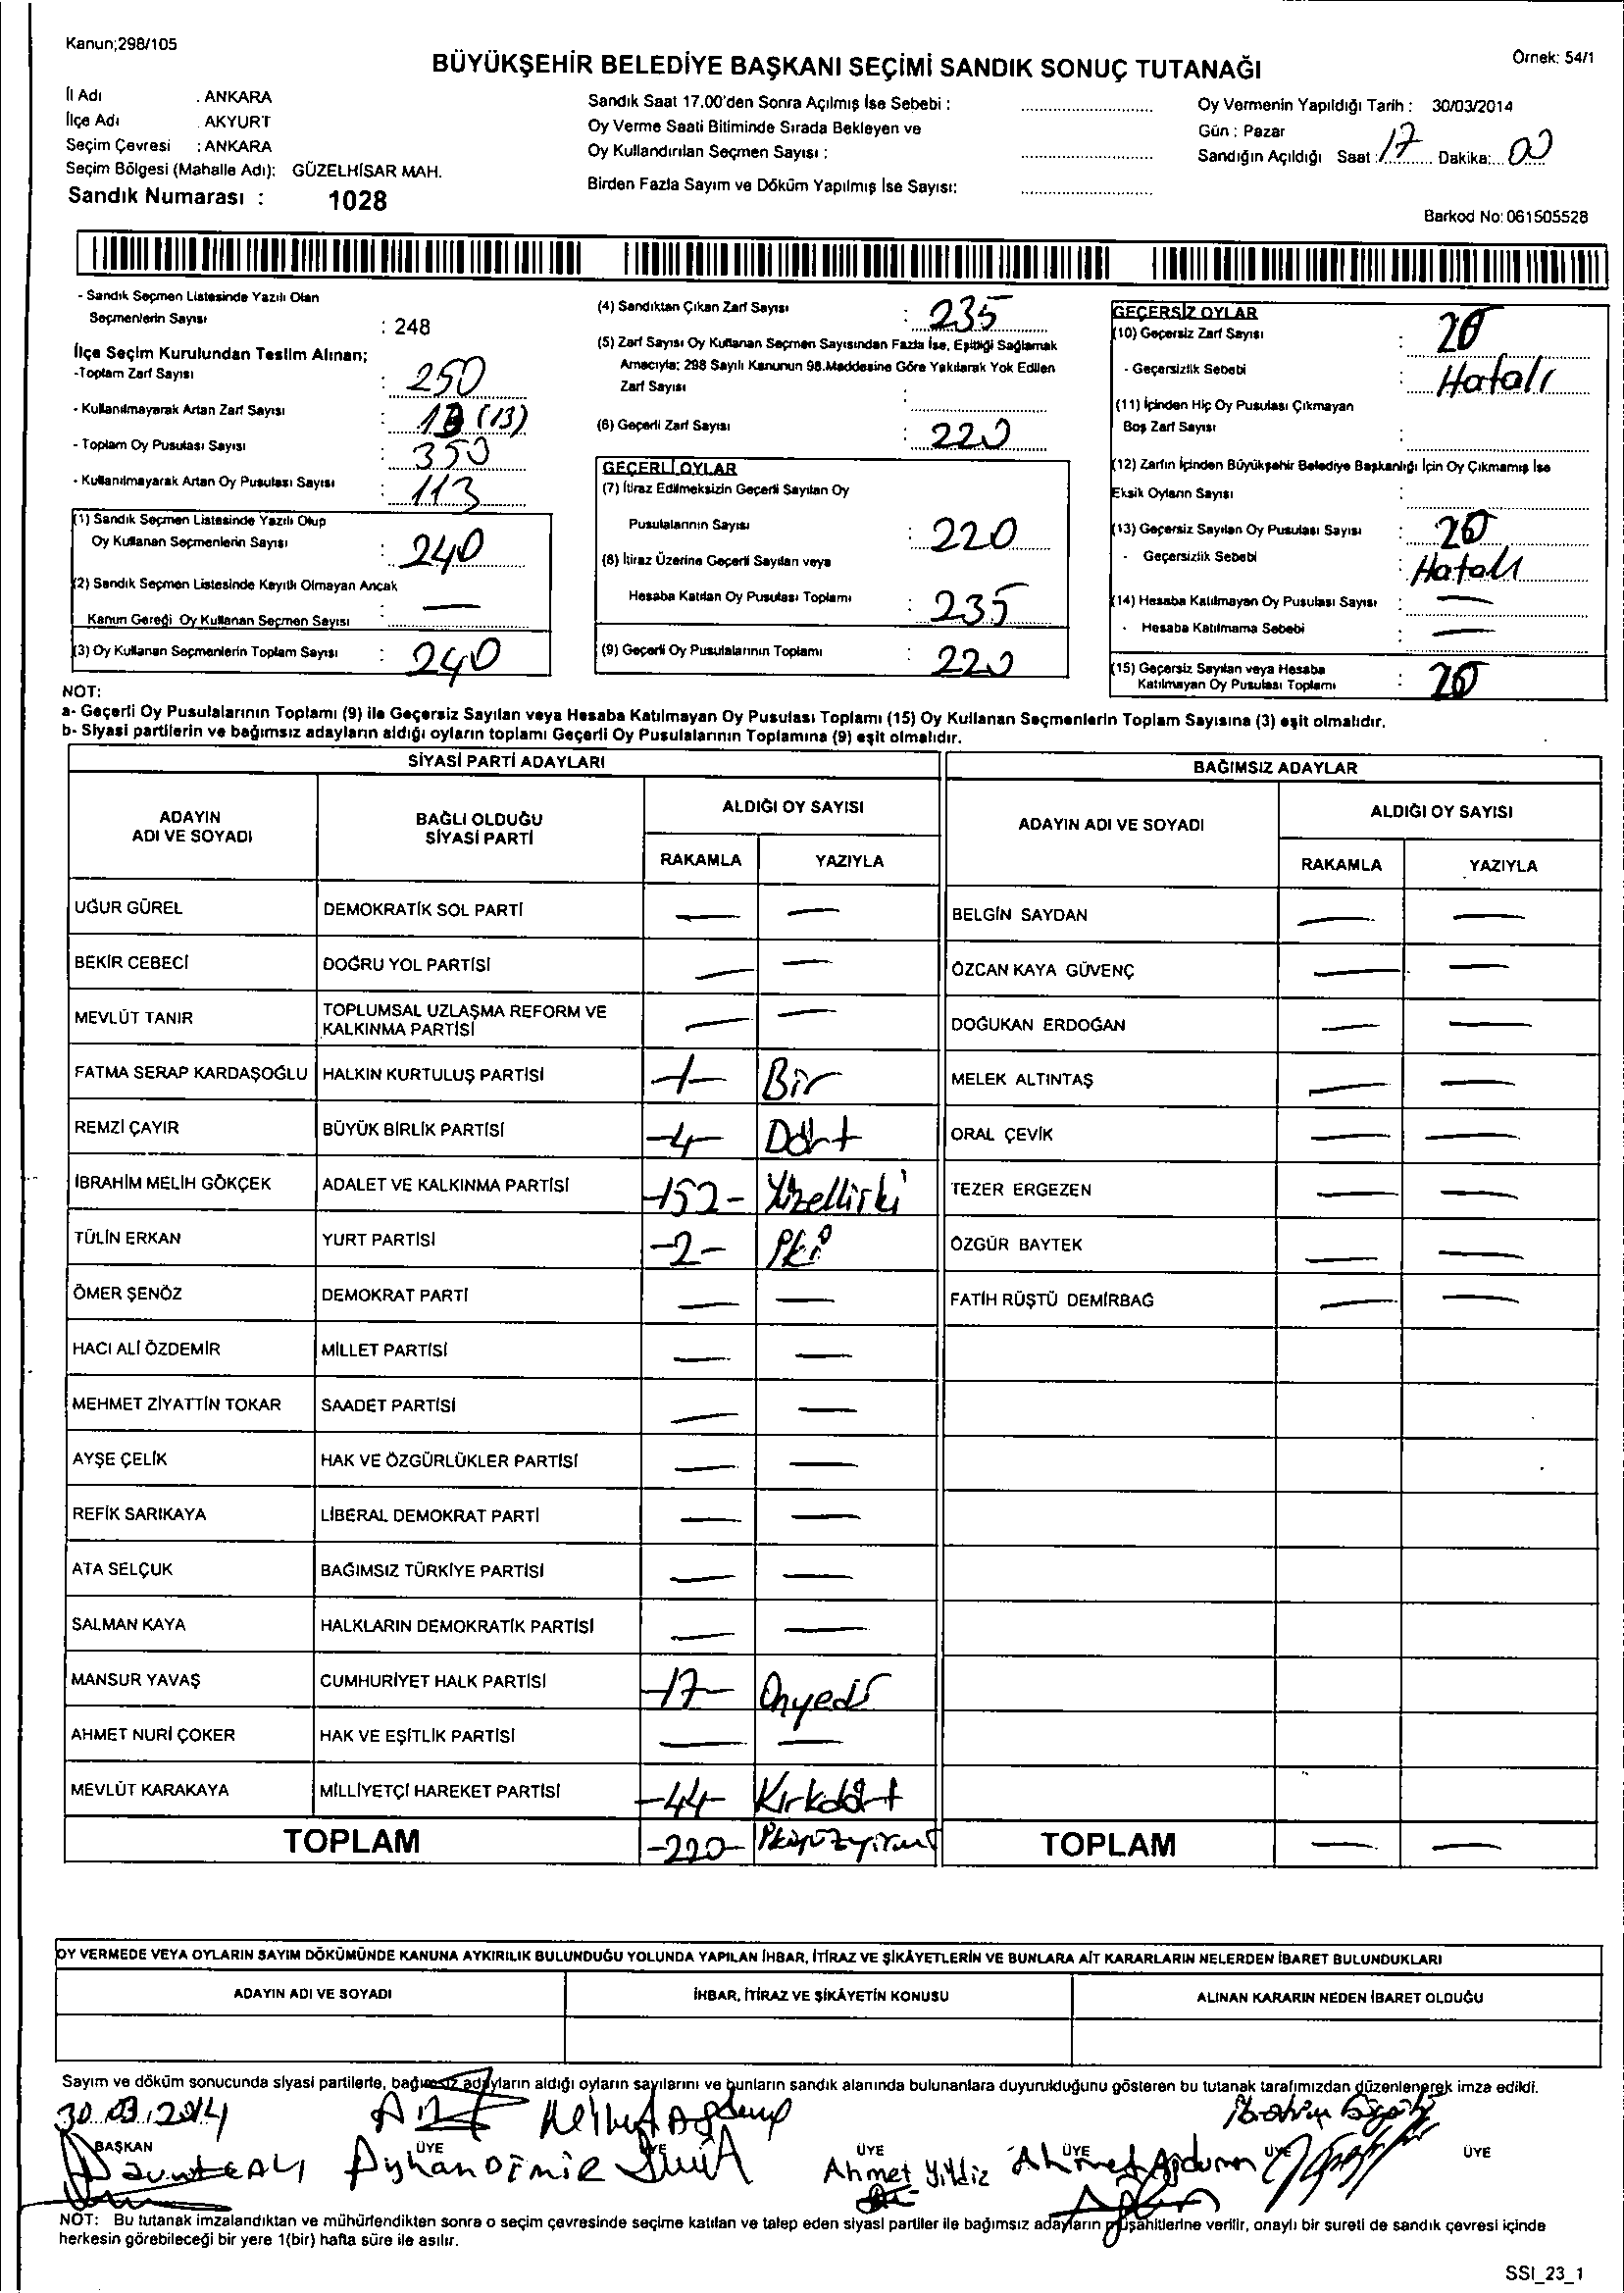 Kanun;298/105
BÜYÜKŞEHİR BELEDİYE BAŞKANI SEÇİMİ SANDIK SONUÇ TUTANAĞI
Örnek: 54/1
İl Adı : ANKARA
İlçe Adı : AKYURT
Seçim Çevresi : ANKARA
Seçim Bölgesi (Mahalle Adı): GÜZELHİSAR MAH.
Sandık Numarası : 1028
Sandık Saat 17.00'den Sonra Açılmış İse Sebebi :
Oy Verme Saati Bitiminde Sırada Bekleyen ve
Oy Kullandırılan Seçmen Sayısı :
Birden Fazla Sayım ve Döküm Yapılmış İse Sayısı:
Oy Vermenin Yapıldığı Tarih : 30/03/2014
Gün : Pazar
Sandığın Açıldığı Saat : 17 Dakika: 00
Barkod No: 061505528
- Sandık Seçmen Listesinde Yazılı Olan
Seçmenlerin Sayısı : 248
İlçe Seçim Kurulundan Teslim Alınan;
-Toplam Zarf Sayısı : 250
- Kullanılmayarak Artan Zarf Sayısı : 13 (13)
- Toplam Oy Pusulası Sayısı : 350
- Kullanılmayarak Artan Oy Pusulası Sayısı : 113
(1) Sandık Seçmen Listesinde Yazılı Olup
Oy Kullanan Seçmenlerin Sayısı : 240
(2) Sandık Seçmen Listesinde Kayıtlı Olmayan Ancak
Kanun Gereği Oy Kullanan Seçmen Sayısı : —
(3) Oy Kullanan Seçmenlerin Toplam Sayısı : 240
(4) Sandıktan Çıkan Zarf Sayısı : 235
(5) Zarf Sayısı Oy Kullanan Seçmen Sayısından Fazla İse, Eşitliği Sağlamak
Amacıyla; 298 Sayılı Kanunun 98.Maddesine Göre Yakılarak Yok Edilen
Zarf Sayısı :
(6) Geçerli Zarf Sayısı : 220
GEÇERLİ OYLAR
(7) İtiraz Edilmeksizin Geçerli Sayılan Oy
Pusulalarının Sayısı : 220
(8) İtiraz Üzerine Geçerli Sayılan veya
Hesaba Katılan Oy Pusulası Toplamı : 235
(9) Geçerli Oy Pusulalarının Toplamı : 220
GEÇERSİZ OYLAR
(10) Geçersiz Zarf Sayısı : 20
- Geçersizlik Sebebi : Hatalı
(11) İçinden Hiç Oy Pusulası Çıkmayan
Boş Zarf Sayısı :
(12) Zarfın İçinden Büyükşehir Belediye Başkanlığı İçin Oy Çıkmamış İse
Eksik Oyların Sayısı :
(13) Geçersiz Sayılan Oy Pusulası Sayısı : 20
- Geçersizlik Sebebi : Hatalı
(14) Hesaba Katılmayan Oy Pusulası Sayısı : —
- Hesaba Katılmama Sebebi : —
(15) Geçersiz Sayılan veya Hesaba
Katılmayan Oy Pusulası Toplamı : 20
NOT:
a- Geçerli Oy Pusulalarının Toplamı (9) ile Geçersiz Sayılan veya Hesaba Katılmayan Oy Pusulası Toplamı (15) Oy Kullanan Seçmenlerin Toplam Sayısına (3) eşit olmalıdır.
b- Siyasi partilerin ve bağımsız adayların aldığı oyların toplamı Geçerli Oy Pusulalarının Toplamına (9) eşit olmalıdır.
SİYASİ PARTİ ADAYLARI
ADAYIN ADI VE SOYADI BAĞLI OLDUĞU SİYASİ PARTİ ALDIĞI OY SAYISI
RAKAMLA YAZIYLA
UĞUR GÜREL DEMOKRATİK SOL PARTİ — —
BEKİR CEBECİ DOĞRU YOL PARTİSİ — —
MEVLÜT TANIR TOPLUMSAL UZLAŞMA REFORM VE KALKINMA PARTİSİ — —
FATMA SERAP KARDAŞOĞLU HALKIN KURTULUŞ PARTİSİ -1- Bir
REMZİ ÇAYIR BÜYÜK BİRLİK PARTİSİ -4- Dört
İBRAHİM MELİH GÖKÇEK ADALET VE KALKINMA PARTİSİ -152- Yüzelliiki
TÜLİN ERKAN YURT PARTİSİ -2- İki
ÖMER ŞENÖZ DEMOKRAT PARTİ — —
HACI ALİ ÖZDEMİR MİLLET PARTİSİ — —
MEHMET ZİYATTİN TOKAR SAADET PARTİSİ — —
AYŞE ÇELİK HAK VE ÖZGÜRLÜKLER PARTİSİ — —
REFİK SARIKAYA LİBERAL DEMOKRAT PARTİ — —
ATA SELÇUK BAĞIMSIZ TÜRKİYE PARTİSİ — —
SALMAN KAYA HALKLARIN DEMOKRATİK PARTİSİ — —
MANSUR YAVAŞ CUMHURİYET HALK PARTİSİ -17- Onyedi
AHMET NURİ ÇOKER HAK VE EŞİTLİK PARTİSİ — —
MEVLÜT KARAKAYA MİLLİYETÇİ HAREKET PARTİSİ -44- Kırkdört
TOPLAM -220- İkiyüzyirmi
BAĞIMSIZ ADAYLAR
ADAYIN ADI VE SOYADI ALDIĞI OY SAYISI
RAKAMLA YAZIYLA
BELGİN SAYDAN — —
ÖZCAN KAYA GÜVENÇ — —
DOĞUKAN ERDOĞAN — —
MELEK ALTINTAŞ — —
ORAL ÇEVİK — —
TEZER ERGEZEN — —
ÖZGÜR BAYTEK — —
FATİH RÜŞTÜ DEMİRBAĞ — —
TOPLAM — —
OY VERMEDE VEYA OYLARIN SAYIM DÖKÜMÜNDE KANUNA AYKIRILIK BULUNDUĞU YOLUNDA YAPILAN İHBAR, İTİRAZ VE ŞİKÂYETLERİN VE BUNLARA AİT KARARLARIN NELERDEN İBARET BULUNDUKLARI
ADAYIN ADI VE SOYADI İHBAR, İTİRAZ VE ŞİKÂYETİN KONUSU ALINAN KARARIN NEDEN İBARET OLDUĞU
Sayım ve döküm sonucunda siyasi partilerle, bağımsız adayların aldığı oyların sayılarını ve bunların sandık alanında bulunanlara duyurulduğunu gösteren bu tutanak tarafımızdan düzenlenerek imza edildi.
30.03.2014
BAŞKAN ÜYE ÜYE ÜYE ÜYE ÜYE
Ahmet Yıldız
NOT: Bu tutanak imzalandıktan ve mühürlendikten sonra o seçim çevresinde seçime katılan ve talep eden siyasi partiler ile bağımsız adayların müşahitlerine verilir, onaylı bir sureti de sandık çevresi içinde
herkesin görebileceği bir yere 1(bir) hafta süre ile asılır.
SSI_23_1